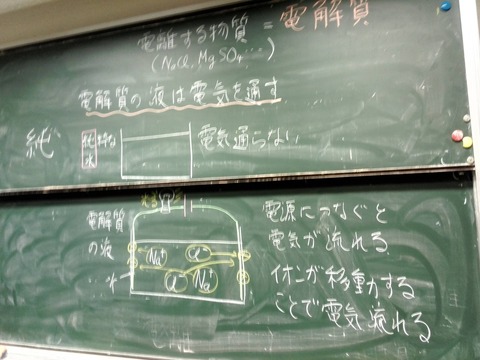 電離する物質 = 電解質
(NaCl, MgSO₄ …)
電解質の液は電気を通す
純
純粋な
水
電気通らない
電解質
の液
Na⁺ Cl⁻
Cl⁻ Na⁺
電源につなぐと
電気が流れる
イオンが移動する
ことで電気流れる